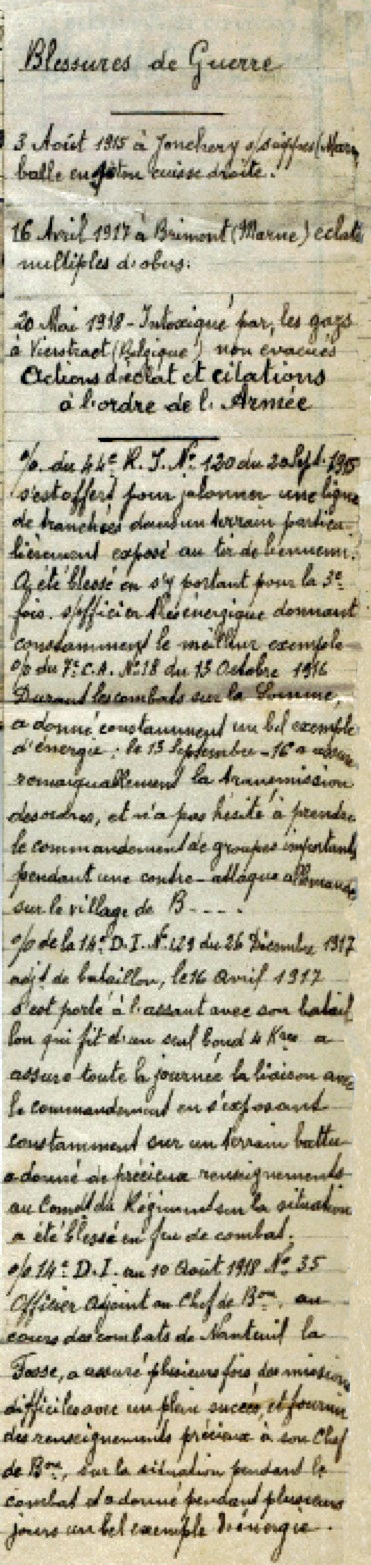 Blessures de Guerre
3 Août 1915 à Jonchery s/suippes (Marne
balle en séton cuisse droite.
16 Avril 1917 à Brimont (Marne) eclats
multiples d'obus.
20 Mai 1918 - Intoxiqué par, les gazs
à Vierstraet (Belgique) non évacués
Actions d'éclat et citations
à l'ordre de l'Armée
o/o. du 44e R. I. No 120 du 20 Sept. 1915
s'est offert pour jalonner une ligne
de tranchées dans un terrain particu
lièrement exposé au tir de l'ennemi.
A été blessé en s'y portant pour la 3e
fois. s/officier très énergique donnant
constamment le meilleur exemple
o/o du 7e C.A. No 18 du 13 Octobre 1916
Durant les combats sur la Somme,
a donné constamment un bel exemple
d'énergie; le 13 Septembre - 16 a assuré
remarquablement la transmission
des ordres, et n'a pas hésité à prendre
le commandement de groupes importants
pendant une contre-attaque allemande
sur le village de B----.
o/o de la 14e D.I. No 129 du 26 Décembre 1917
adjt de bataillon, le 16 Avril 1917
s'est porté à l'assaut avec son batail
lon qui fit d'un seul bond 4 Kres a
assuré toute la journée la liaison avec
le commandement en s'exposant
constamment sur un terrain battu
a donné de précieux renseignements
au Comdt du Régiment sur la situation
a été blessé en fin de combat.
o/o 14e D.I. au 10 Août 1918 No 35
Officier adjoint au Chef de Bon, au
cours des combats de Nanteuil la
Fosse, a assuré plusieurs fois des missions
difficiles avec un plein succès, et fourni
des renseignements précieux à son Chef
de Bon, sur la situation pendant le
combat et a donné pendant plusieurs
jours un bel exemple d'énergie.